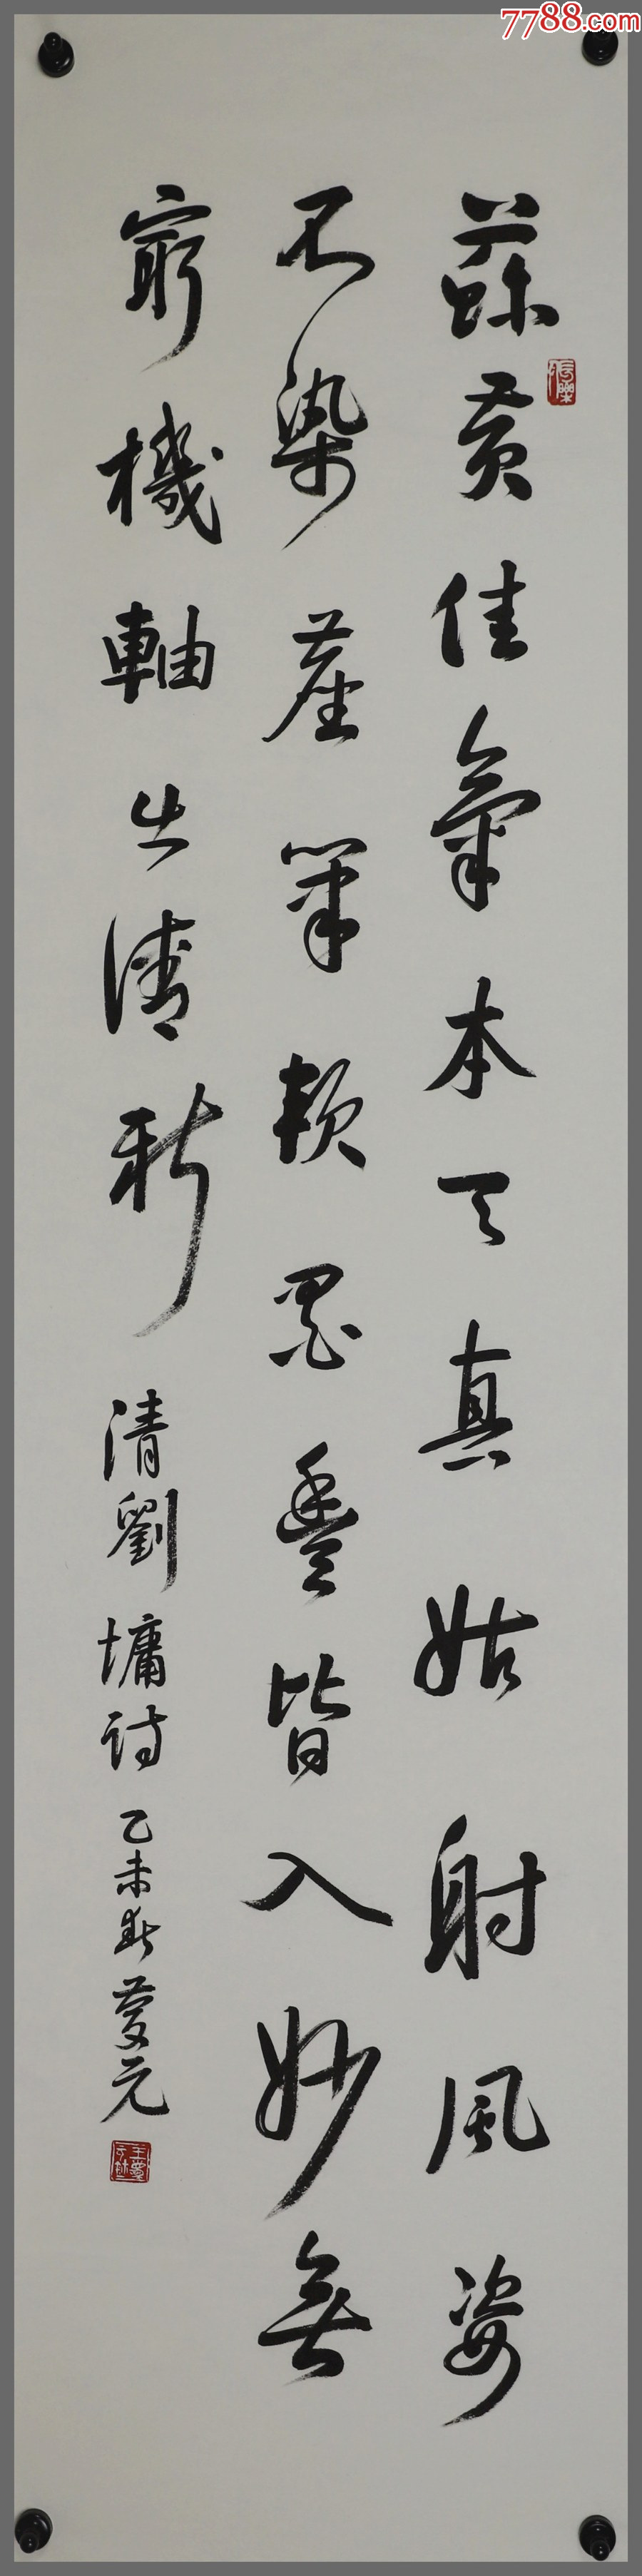 7788.com
蘇黃佳氣本天真姑射風姿
不染塵筆軟墨豐皆入妙無
窮機軸出清新 清劉墉詩 乙未 夢元